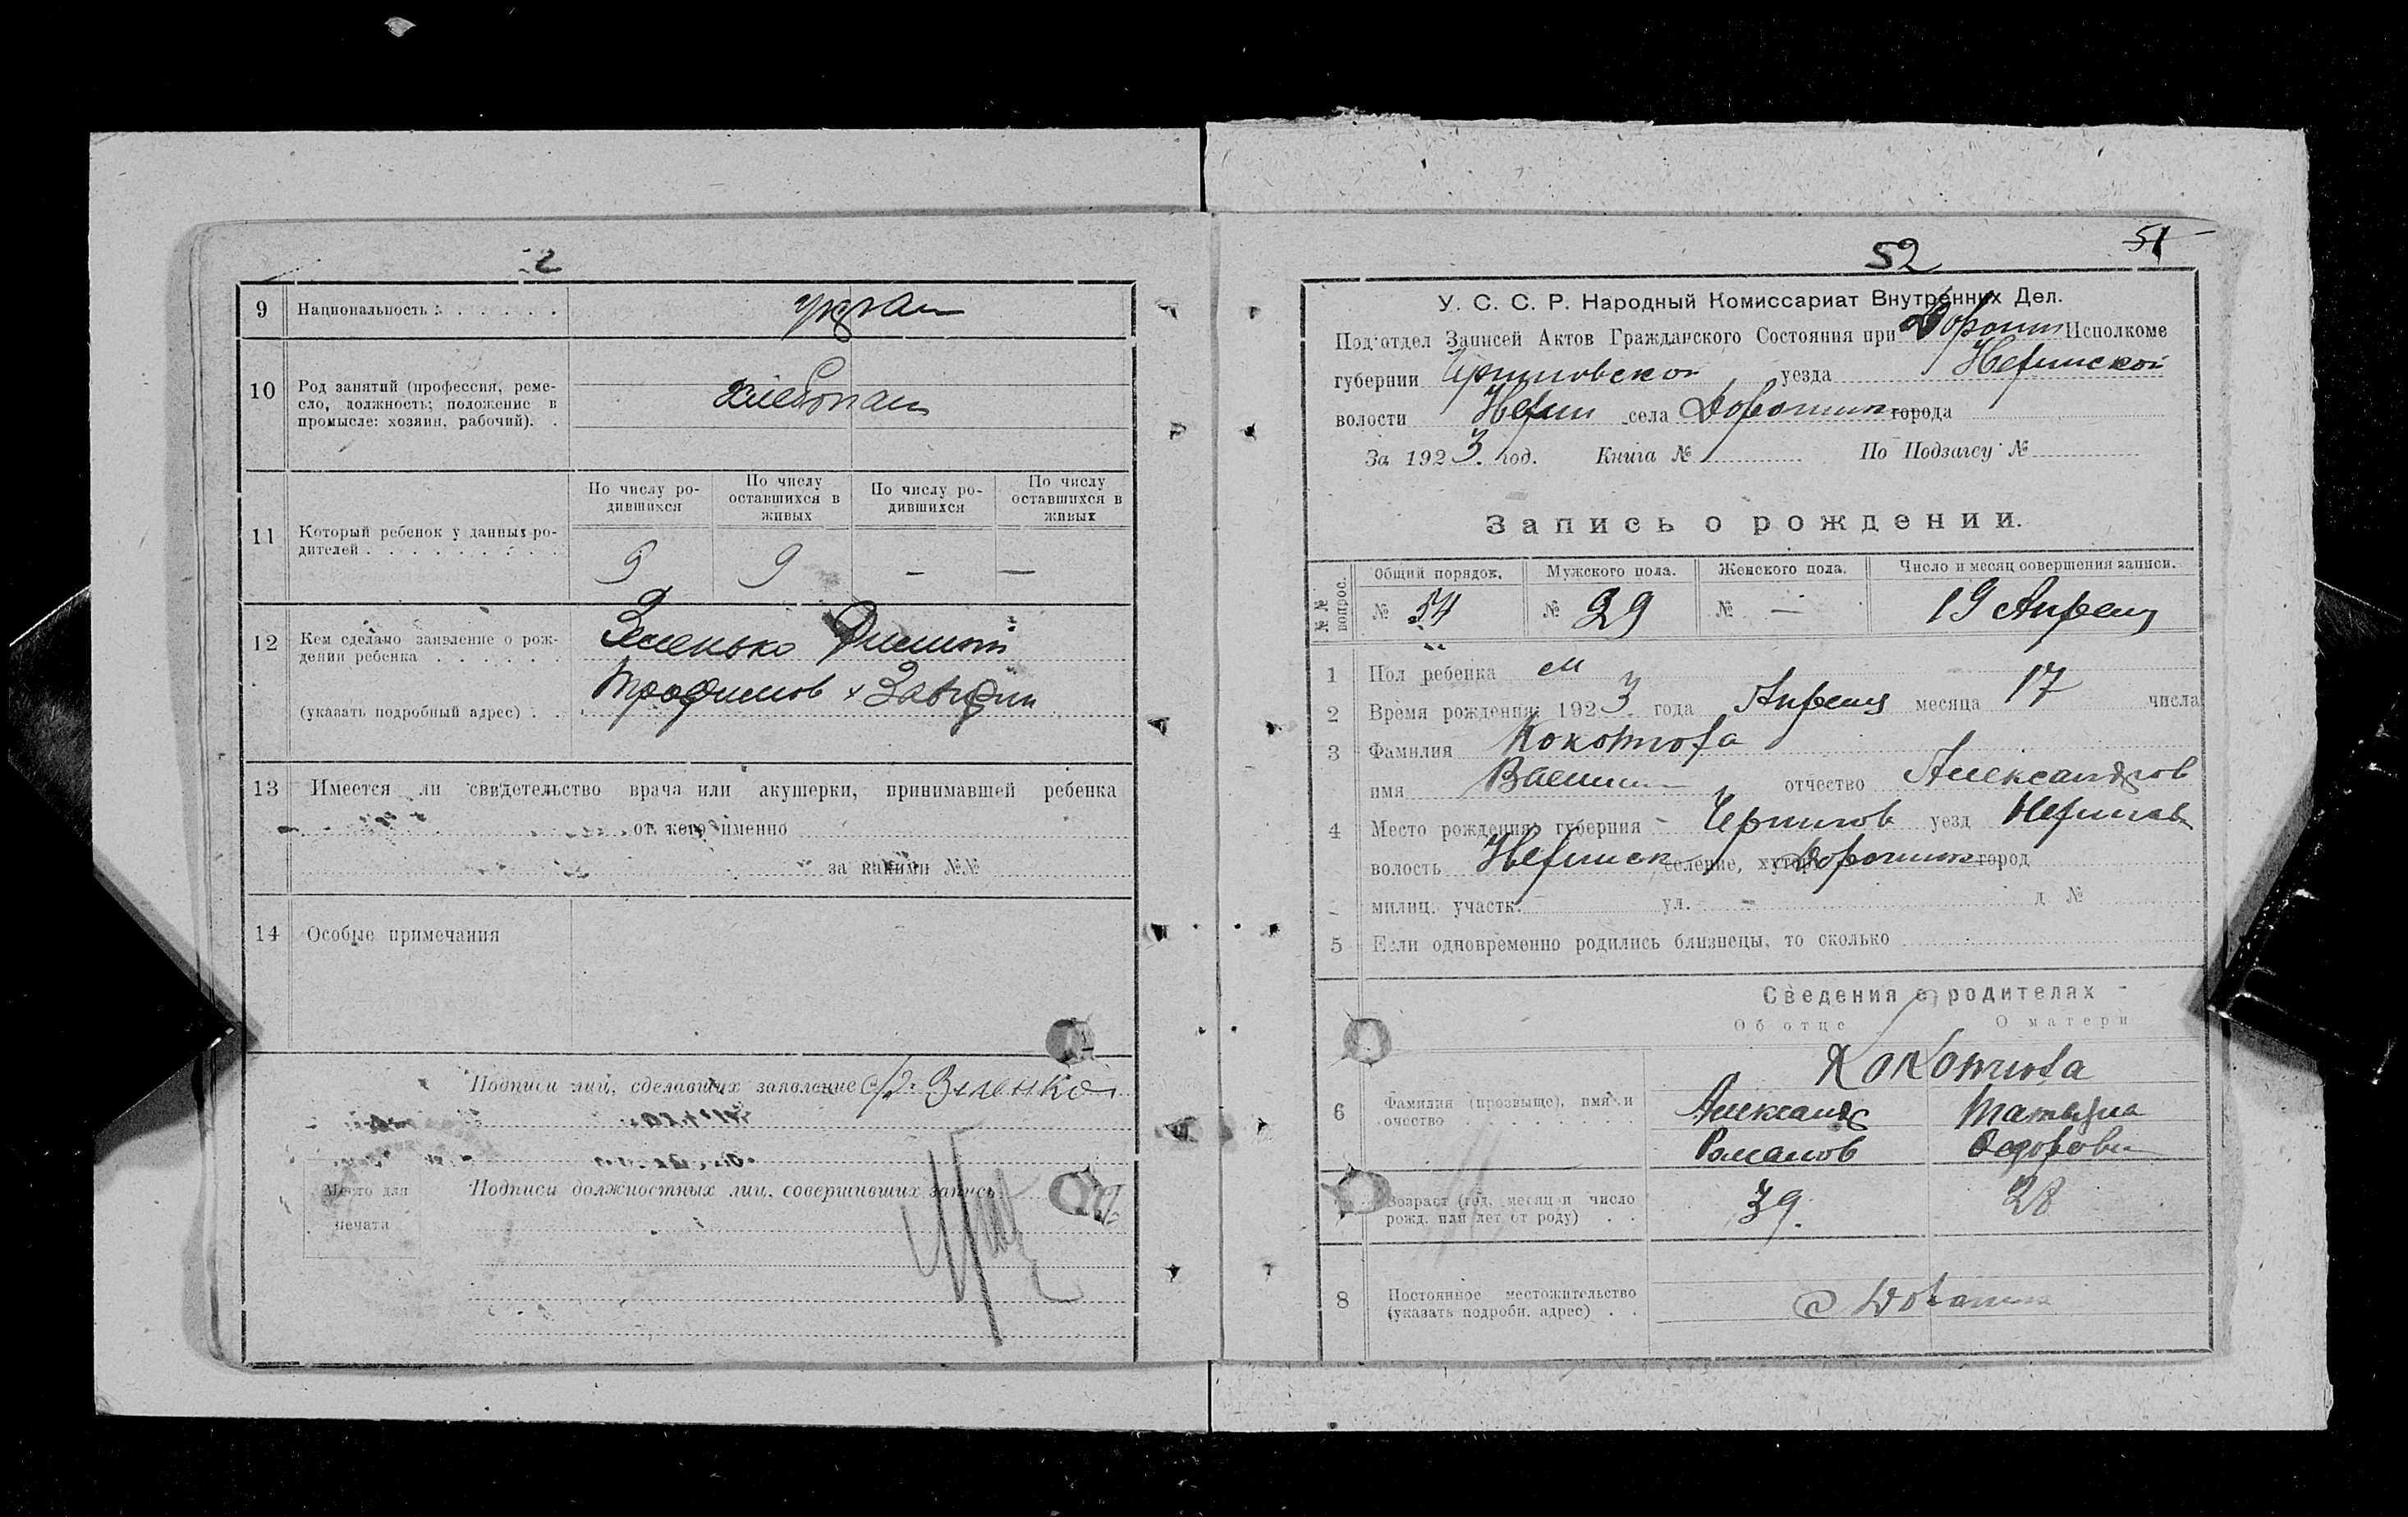 2
9 Национальность
украин
10 Род занятий (профессия, реме-
сло, должность; положение в
промысле: хозяин, рабочий).
хлебопаш
11 Который ребенок у данных ро-
дителей
По числу ро-
дившихся
По числу
оставшихся в
живых
По числу ро-
дившихся
По числу
оставшихся в
живых
9 9 — —
12 Кем сделано заявление о рож-
дении ребенка
Зеленько
Трофимов х
(указать подробный адрес)
13 Имеется ли свидетельство врача или акушерки, принимавшей ребенка
от кого именно
за какими №№
14 Особые примечания
Подписи лиц, сделавших заявление Зеленко
Место для
печати
Подписи должностных лиц, совершивших запись
52 51
У. С. С. Р. Народный Комиссариат Внутренних Дел.
Под'отдел Записей Актов Гражданского Состояния при Дорогин Исполкоме
губернии Черниговской уезда Нежинской
волости Нежин села Дорогинк города
За 1923 год. Книга № По Подзагсу №
Запись о рождении.
№№ вопрос.
Общий порядок. Мужского пола. Женского пола. Число и месяц совершения записи.
№ 54 № 29 № — 19 Апреля
1 Пол ребенка м
2 Время рождения: 1923 года Апреля месяца 17 числа
3 Фамилия
имя отчество Александров
4 Место рождения: губерния Чернигов уезд Нежинск
волость Нежинск селение, хутор Дорогинк город
милиц. участк. ул. — д №
5 Если одновременно родились близнецы, то сколько
Сведения о родителях
Об отце О матери
6 Фамилия (прозвище), имя и
отчество
Александр Татьяна
Романов Федоровн
7 Возраст (год, месяц и число
рожд. или лет от роду)
39. 28
8 Постоянное местожительство
(указать подробн. адрес)